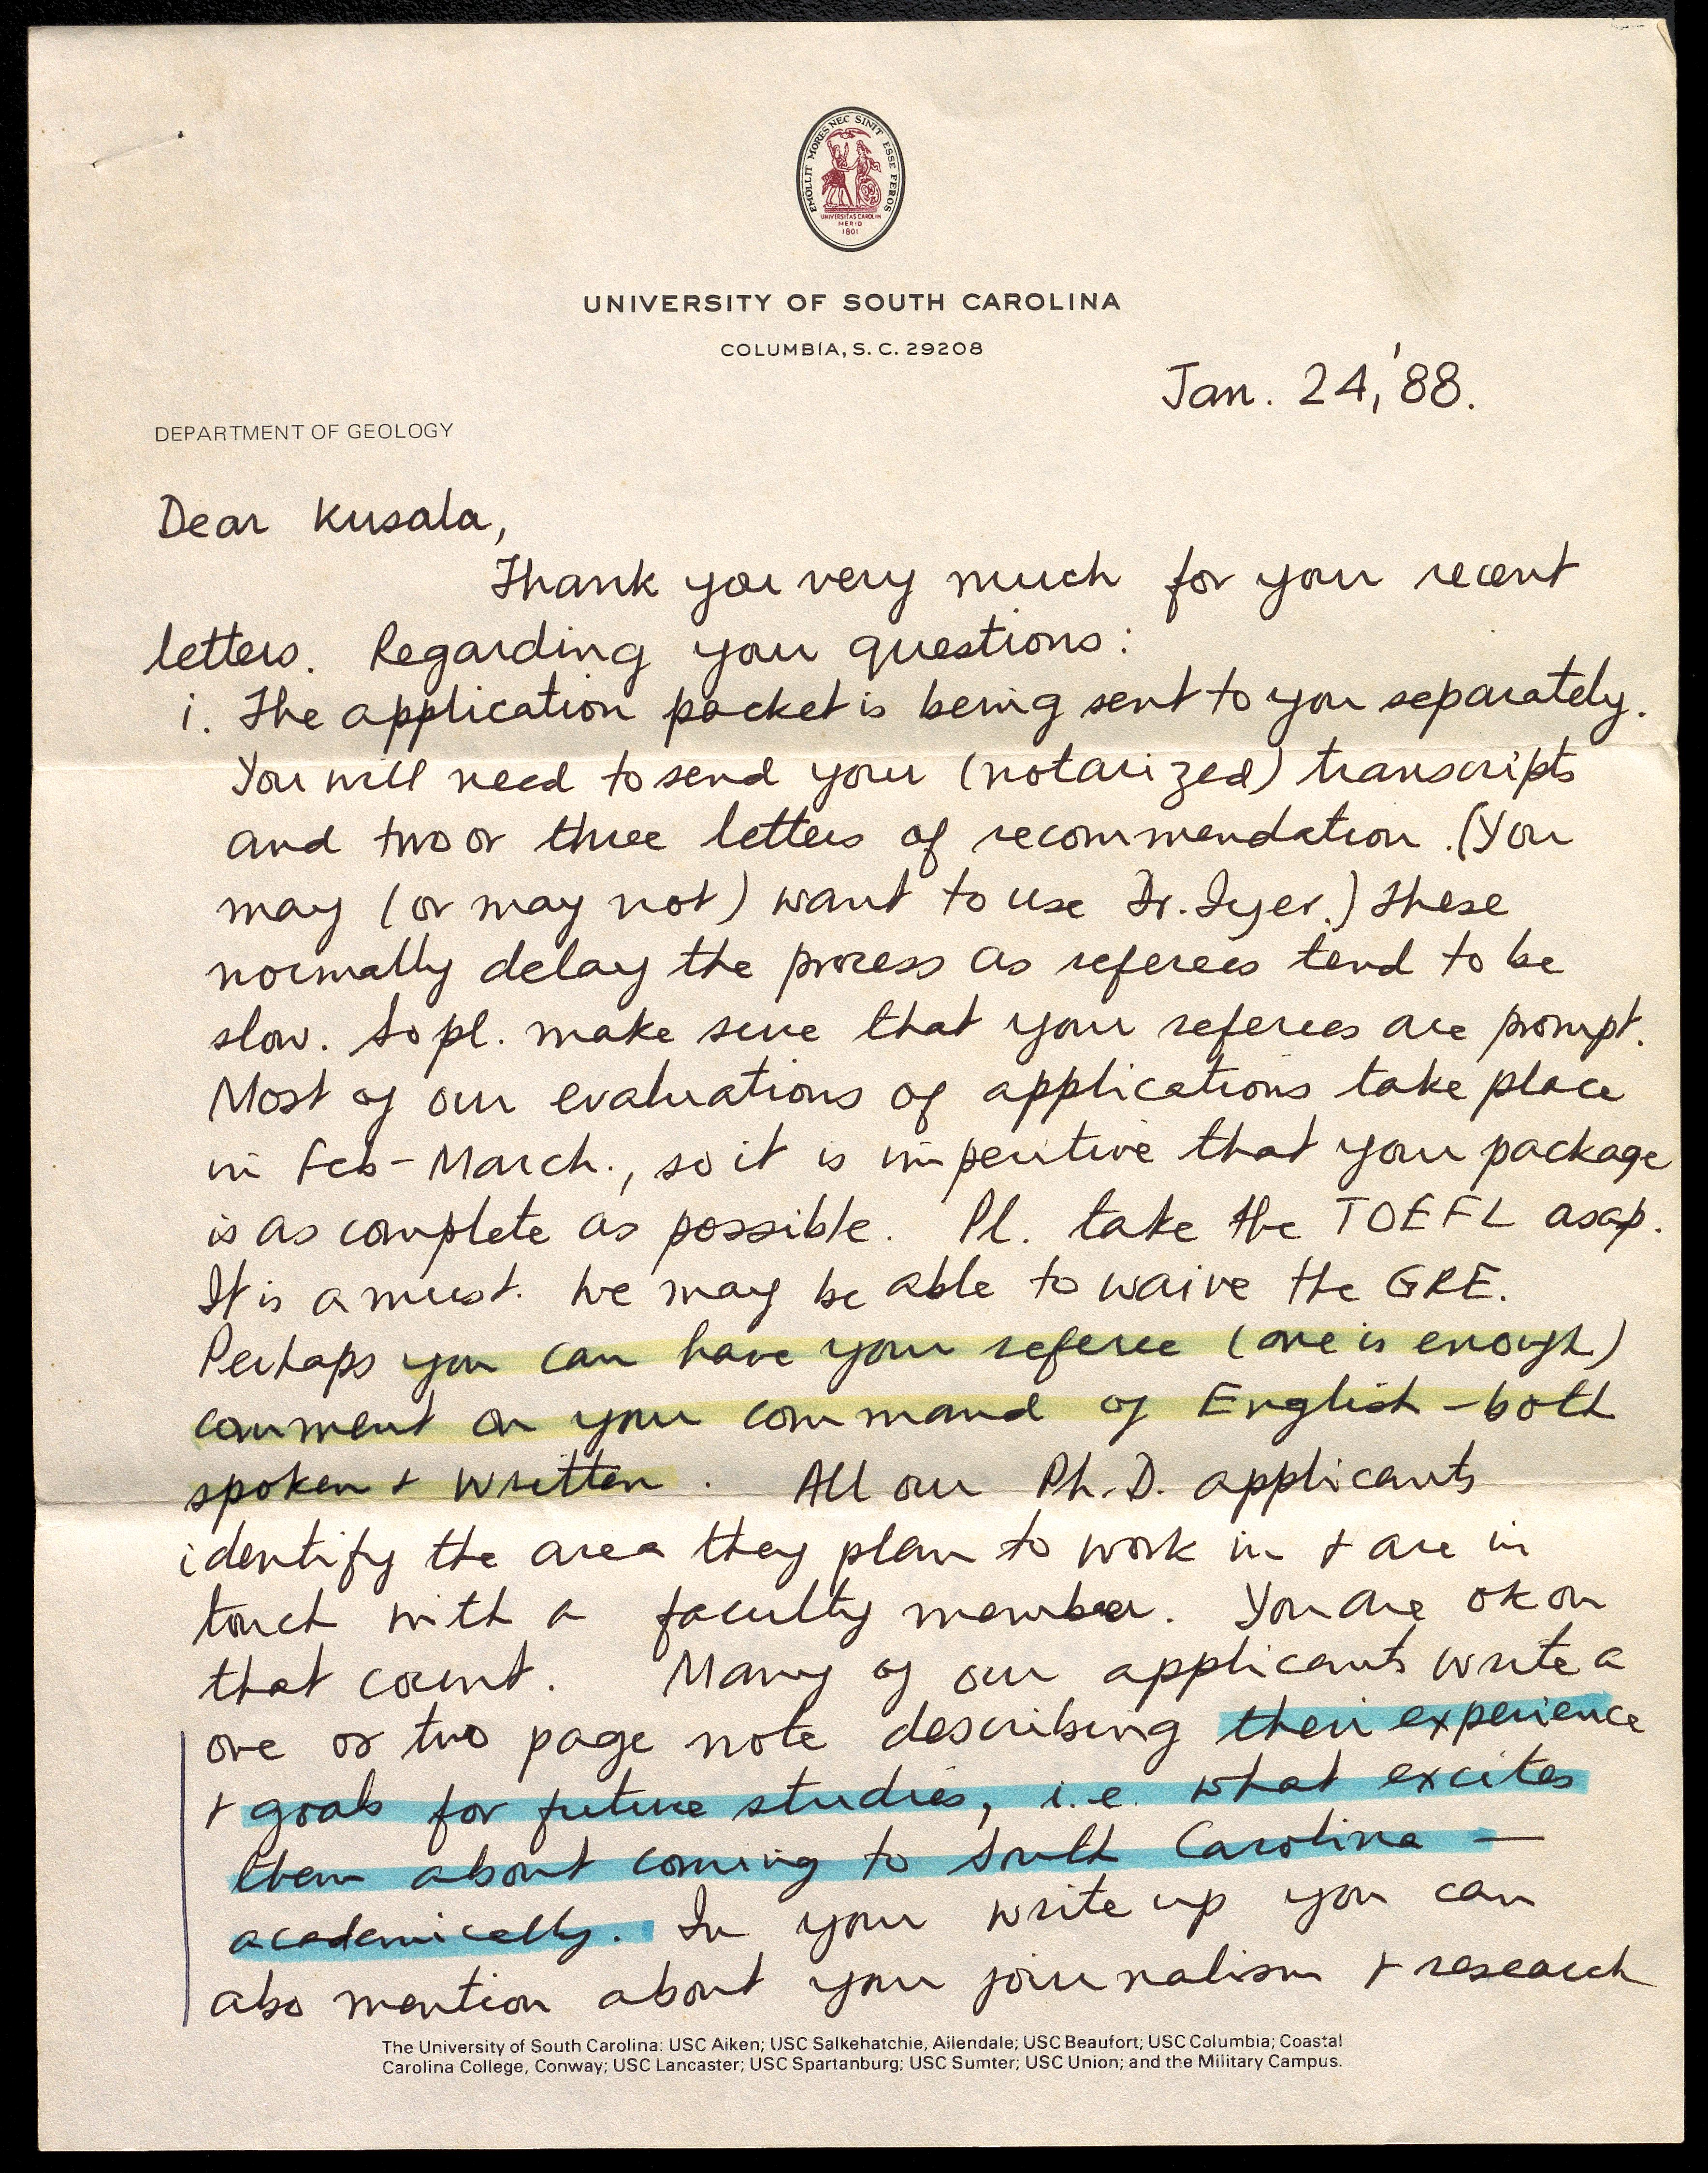 EMOLLIT MORES NEC SINIT ESSE FEROS
UNIVERSITAS CAROLIN
MERID
1801
UNIVERSITY OF SOUTH CAROLINA
COLUMBIA, S. C. 29208
Jan. 24, '88.
DEPARTMENT OF GEOLOGY
Dear Kusala,
Thank you very much for your recent
letters. Regarding your questions:
i. The application packet is being sent to you separately.
You will need to send your (notarized) transcripts
and two or three letters of recommendation. (You
may (or may not) want to use Dr. Iyer.) These
normally delay the process as referees tend to be
slow. So pl. make sure that your referees are prompt.
Most of our evaluations of applications take place
in Feb-March., so it is imperitive that your package
is as complete as possible. Pl. take the TOEFL asap.
It is a must. We may be able to waive the GRE.
Perhaps you can have your referee (one is enough)
comment on your command of English - both
spoken + written. All our Ph.D. applicants
identify the area they plan to work in + are in
touch with a faculty member. You are ok on
that count. Many of our applicants write a
one or two page note describing their experience
+ goals for future studies, i.e. what excites
them about coming to South Carolina —
academically. In your write up you can
also mention about your journalism + research
The University of South Carolina: USC Aiken; USC Salkehatchie, Allendale; USC Beaufort; USC Columbia; Coastal
Carolina College, Conway; USC Lancaster; USC Spartanburg; USC Sumter; USC Union; and the Military Campus.